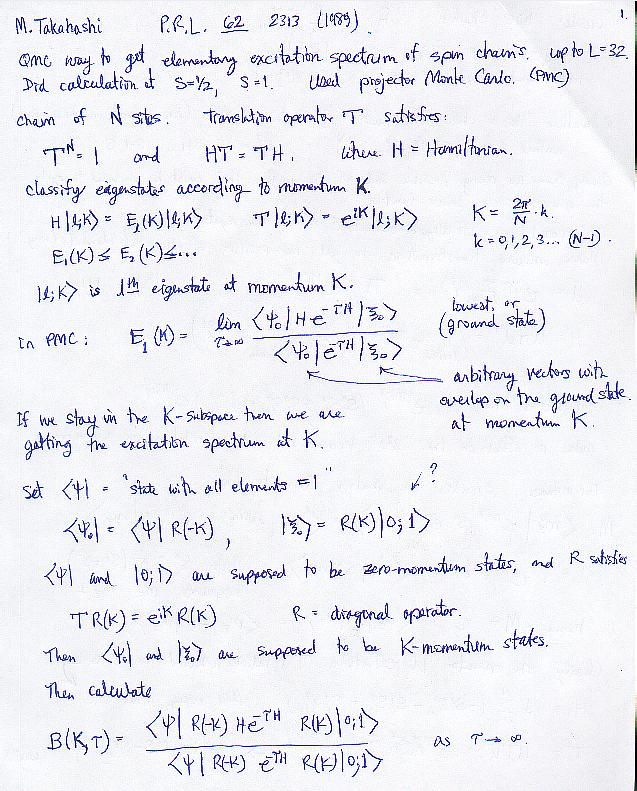 1.
M. Takahashi P.R.L. 62 2313 (1989).
QMC way to get elementary excitation spectrum of spin chains. up to L=32.
Did calculation at S=1/2, S=1. Used projector Monte Carlo. (PMC)
Chain of N sites. Translation operator T satisfies:
T^N = 1 and HT = TH, where H = Hamiltonian.
Classify eigenstates according to momentum K.
H|l;K> = E_l(K)|l;K> T|l;K> = e^{iK}|l;K> K = 2π/N · k.
E_1(K) ≤ E_2(K) ≤ ... k = 0,1,2,3... (N-1).
|l;K> is lth eigenstate at momentum K.
in PMC: E_1(K) = lim τ→∞ <Ψ_0|H e^{-τH}|ξ_0> / <Ψ_0|e^{-τH}|ξ_0> (lowest, or ground state)
arbitrary vectors with
overlap on the ground state
at momentum K.
If we stay in the K-subspace then we are
getting the excitation spectrum at K.
Set <Ψ| = "state with all elements = 1" ?
<Ψ_0| = <Ψ|R(-K), |ξ_0> = R(K)|0;1>
<Ψ| and |0;1> are supposed to be zero-momentum states, and R satisfies
T R(K) = e^{iK} R(K) R = diagonal operator.
Then <Ψ_0| and |ξ_0> are supposed to be K-momentum states.
Then calculate
B(K,τ) = <Ψ|R(-K) H e^{-τH} R(K)|0;1> / <Ψ|R(-K) e^{-τH} R(K)|0;1> as τ→∞.